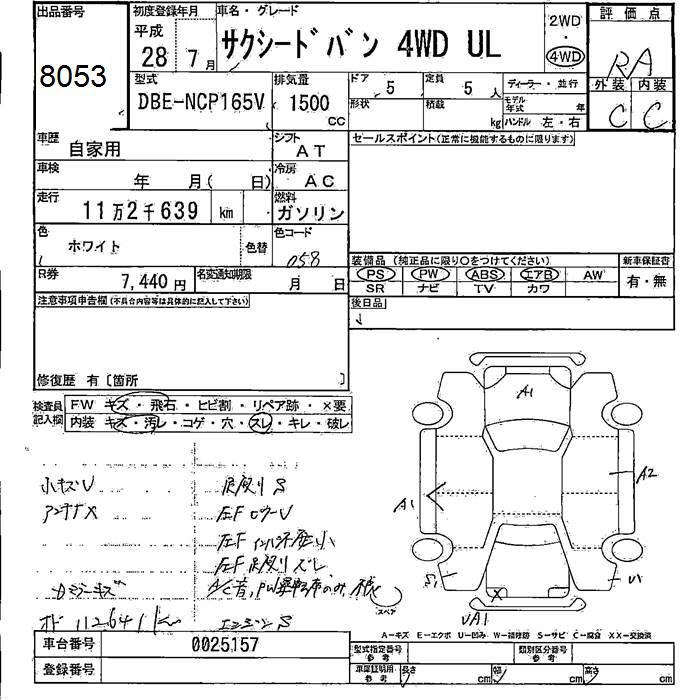 出品番号
8053
初度登録年月
平成
28 7月
車名・グレード
サクシードバン 4WD UL
2WD
・
4WD
評価点
RA
外装 内装
C C
型式
DBE-NCP165V
排気量
1500
CC
ドア 5
定員 5 人
ディーラー・並行
形状
積載
kg
モデル年式 年
ハンドル 左・右
車歴
自家用
シフト
AT
車検
年 月( 日)
冷房
AC
走行
11万2千639 km
燃料
ガソリン
色
ホワイト
色替
色コード
058
R券
7,440円
名変通知期限
月 日
セールスポイント(正常に機能するものに限ります)
装備品 (純正品に限り○をつけてください)
新車保証書
PS PW ABS エアB AW
SR ナビ TV カワ
有・無
後日品
注意事項申告欄(不具合内容等は具体的に記入して下さい)
修復歴 有〔箇所 〕
検査員記入欄
FW キズ・飛石・ヒビ割・リペア跡・×要
内装 キズ・汚レ・コゲ・穴・スレ・キレ・破レ
小キズU
アンテナX
オド 112641km
左F
左F
左F
エンジンS
A1
A2
A1
S1
U1
X
UA1
スペア
A-キズ E-エクボ U-凹み W-補修跡 S-サビ C-腐食 XX-交換済
車台番号
0025157
登録番号
型式指定番号
参考
類別区分番号
参考
車庫証明用
参考
長さ cm 幅 cm 高さ cm